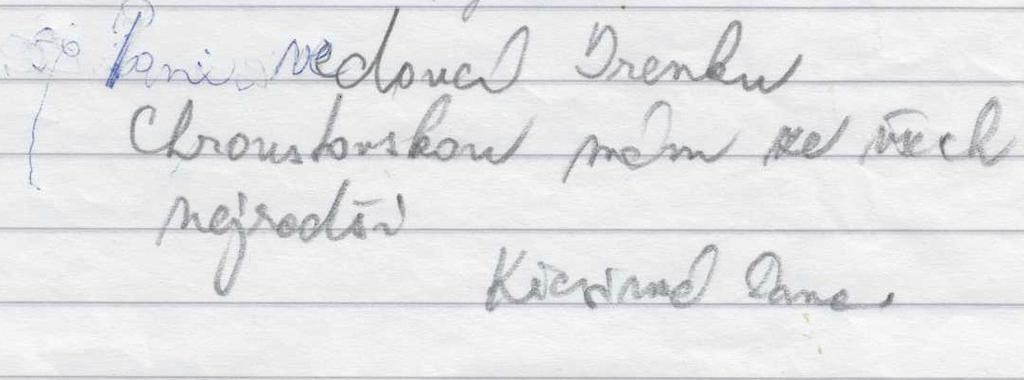 Paní vedoucí Irenku
Chroustovskou mám ze všech
nejradši
Dana.